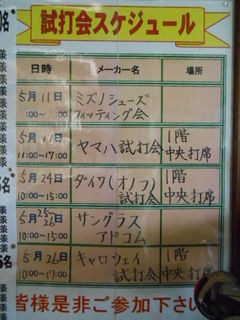 試打会スケジュール
日時 メーカー名 場所
5月11日 ミズノシューズ
:00～ :00 フィッティング会
5月 日 ヤマハ試打会 1階
11:00～17:00 中央打席
5月24日 ダイワ(オノフ) 1階
10:00～15:00 試打会 中央打席
5月25 26日 サングラス
10:00～15:00 アドコム
5月26日 キャロウェイ 1階
10:00～15:00 試打会 中央打席
皆様是非ご参加下さい